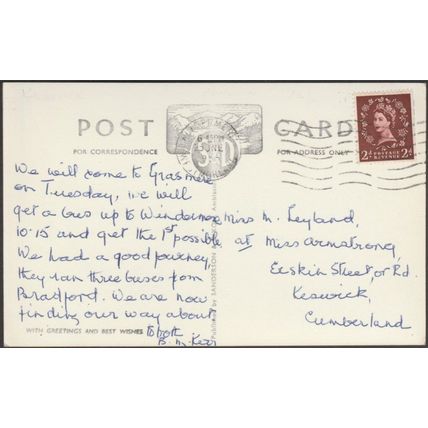 POST CARD
FOR CORRESPONDENCE
FOR ADDRESS ONLY
2D POSTAGE REVENUE 2D
We will come to Grasmere
on Tuesday, we will
get a bus up to Windermere
10.15 and get the 1st possible
We had a good journey,
they ran three buses from
Bradford. We are now
finding our way about
WITH GREETINGS AND BEST WISHES
To both
B. M. Kerr
Published by SANDERSON
Miss M. Leyland,
at Miss Armstrong,
Erskin Street, or Rd.
Keswick,
Cumberland